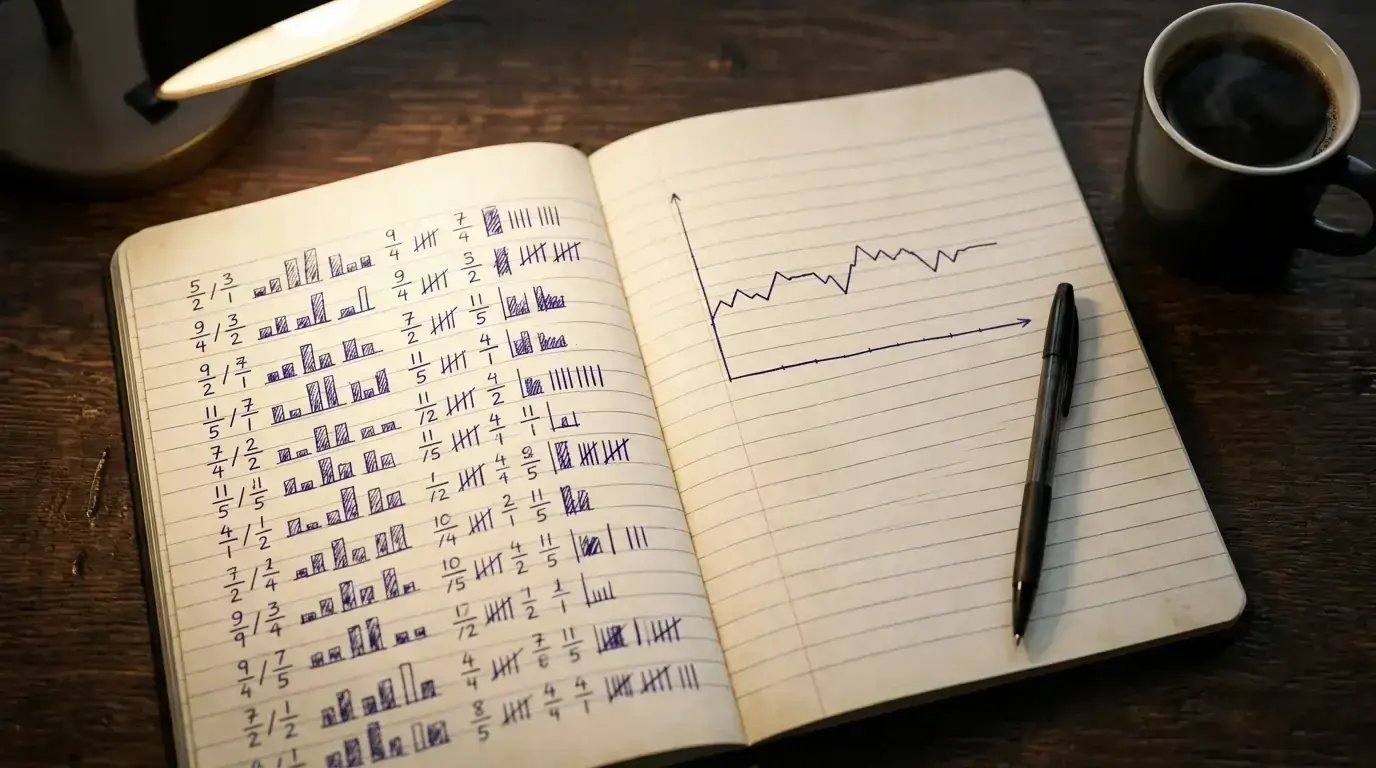 5/2 / 3/1 9/4 7/4
9/4 / 3/2 9/4 3/2
9/2 / 7/1 7/2 11/5
11/5 / 7/1 11/5 4/1
7/4 / 2/2 11/12 4/2
11/5 / 11/5 11/15 4/1 11/1
4/1 / 1/2 1/12 4/4 8/5
7/2 / 2/4 10/14 2/1 11/5
9/9 / 3/4 10/15 4/2 11/5
9/4 / 7/5 /12 1/2 1/1
7/2 / 1/2 4/4 11/5
8/5 4/4 4/1